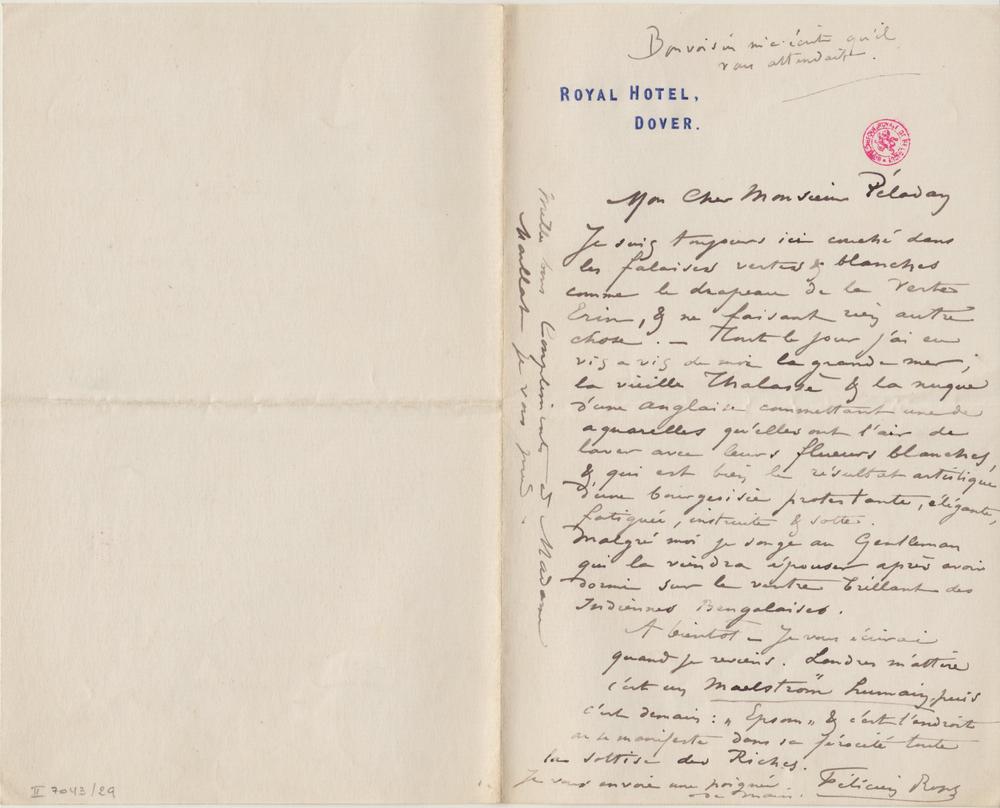 Bonvoisin m'a écrit qu'il
vous attendait.
ROYAL HOTEL,
DOVER.
Mon Cher Monsieur Péladan
Je suis toujours ici couché dans
les falaises vertes & blanches
comme le drapeau de la Verte
Erin, & ne faisant rien autre
chose. – Tout le jour j'ai eu
vis a vis de moi la grande mer;
la vieille Thalassé & la nuque
d'une anglaise commettant une de
aquarelles qu'elles ont l'air de
laver avec leurs flueurs blanches,
& qui est bien le résultat artistique
d'une bourgeoisie protestante, élégante,
fatiguée, instruite & sotte.
Malgré moi je songe au Gentleman
qui la viendra épouser après avoir
dormi sur le ventre brillant des
Indiennes Bengalaises.
A bientot – Je vous écrirai
quand je reviens. Londres m'attire
c'est un Maelström humain, puis
c'est demain: „Epsom" & c'est l'endroit
où se manifeste dans sa férocité toute
la sottise des Riches.
Je vous envoie une poignée
de main. Félicien Rops
Mille bons Compliments à Madame
Maillat je vous prie.
II 7043/29